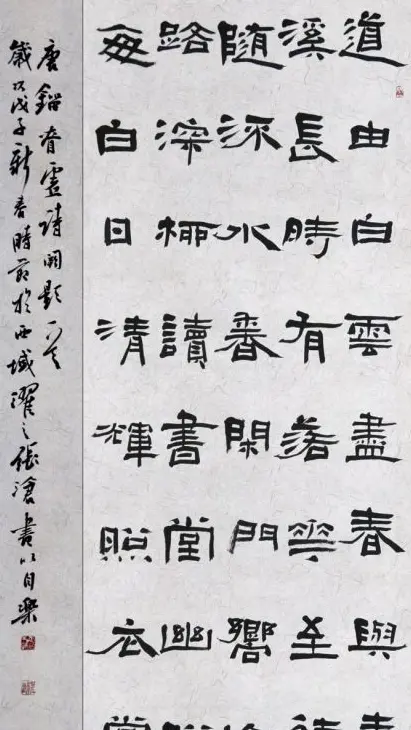 道由白雲盡春與
溪長時有落花至
隨流水香閑門嚮
路深柳讀書堂幽
每白日清輝照衣
唐劉眘虛詩闕題一首
歲次戊子新春時節於西域濯之張滄書以自樂